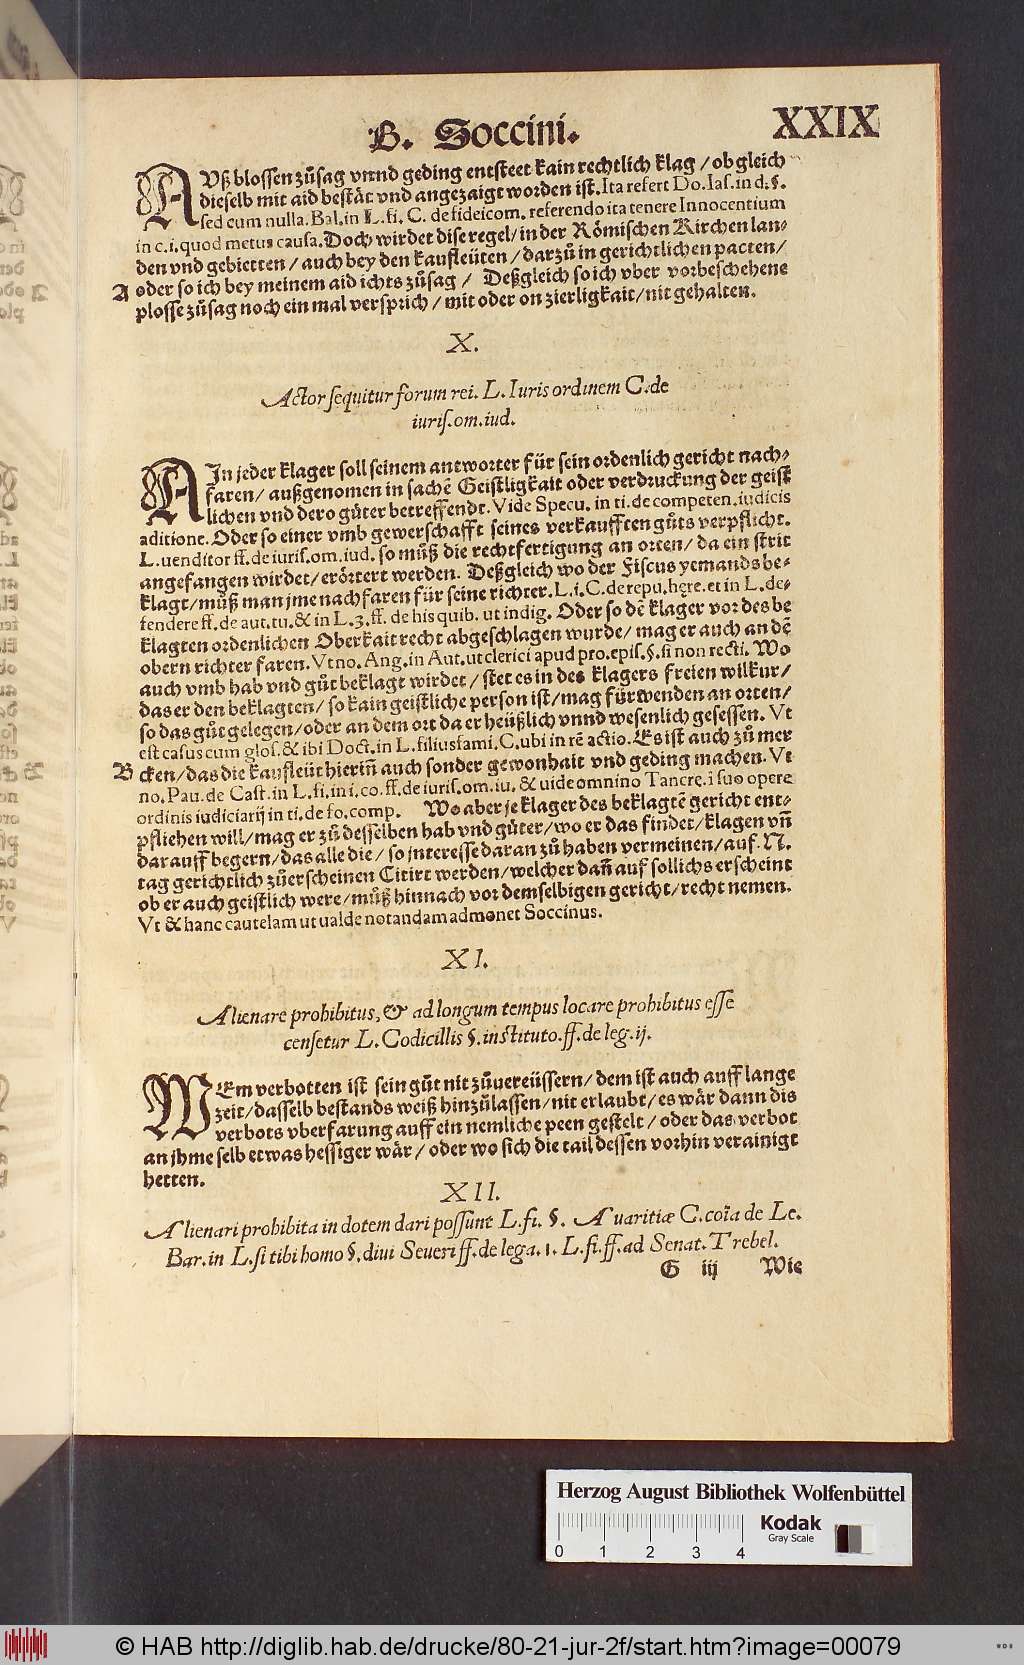 B. Soccini. XXIX
AUß blossen zůsag vnnd geding entsteet kain rechtlich klag / ob gleich
dieselb mit aid bestät vnd angezaigt worden ist. Ita refert Do. Ias. in d. §.
sed cum nulla. Bal. in L. fi. C. de fideicom. referendo ita tenere Innocentium
in c. i. quod metus causa. Doch wirdet dise regel / in der Römischen Kirchen lan-
den vnd gebietten / auch bey den kaufleüten / darzů in gerichtlichen pacten /
A oder so ich bey meinem aid ichts zůsag / Deßgleich so ich vber vorbeschehene
plosse zůsag noch ein mal versprich / mit oder on zierligkait / nit gehalten.
X.
Actor sequitur forum rei. L. Iuris ordinem C. de
iuris. om. iud.
AIn jeder klager soll seinem antworter für sein ordenlich gericht nach-
faren / außgenomen in sachẽ Geistligkait oder verdruckung der geist
lichen vnd dero güter betreffendt. Vide Specu. in ti. de competen. iudicis
aditione. Oder so einer vmb gewerschafft seines verkaufften gůts verpflicht.
L. uenditor ff. de iuris. om. iud. so můß die rechtfertigung an orten / da ein strit
angefangen wirdet / erörtert werden. Deßgleich wo der Fiscus yemands be-
klagt / můß man jme nach faren für seine richter. L. i. C. de repu. hęre. et in L. de-
fendere ff. de aut. tu. & in L. 3. ff. de his quib. ut indig. Oder so dẽ klager vor des be
klagten ordenlichen Oberkait recht abgeschlagen wurde / mag er auch an dẽ
obern richter faren. Vt no. Ang. in Aut. ut clerici apud pro. epis. §. si non recti. Wo
auch vmb hab vnd gůt beklagt wirdet / stet es in des klagers freien wilkur /
das er den beklagten / so kain geistliche person ist / mag fürwenden an orten /
so das gůt gelegen / oder an dem ort da er heüßlich vnnd wesenlich gesessen. Vt
est casus cum glos. & ibi Doct. in L. filiusfami. C. ubi in rẽ actio. Es ist auch zů mer
B cken / das die kaufleüt hierin̄ auch sonder gewonhait vnd geding machen. Vt
no. Pau. de Cast. in L. fi. in i. co. ff. de iuris. om. iu. & uide omnino Tancre. i suo opere
ordinis iudiciarij in ti. de fo. comp. Wo aber je klager des beklagtẽ gericht ent-
pfliehen will / mag er zů desselben hab vnd güter / wo er das findet / klagen vn̄
darauff begern / das alle die / so interesse daran zů haben vermeinen / auf. N.
tag gerichtlich zůerscheinen Citirt werden / welcher dan̄ auf sollichs erscheint
ob er auch geistlich were / můß hinnach vor demselbigen gericht / recht nemen.
Vt & hanc cautelam ut ualde notandam admonet Soccinus.
XI.
Alienare prohibitus, & ad longum tempus locare prohibitus esse
censetur L. Codicillis §. instituto. ff. de leg. ij.
WEm verbotten ist sein gůt nit zůvereüssern / dem ist auch auff lange
zeit / dasselb bestands weiß hinzůlassen / nit erlaubt / es wär dann dis
verbots vberfarung auff ein nemliche peen gestelt / oder das verbot
an jhme selb etwas hessiger wär / oder wo sich die tail dessen vorhin verainigt
hetten.
XII.
Alienari prohibita in dotem dari possunt L. fi. §. Auaritiæ C. cōia de Le.
Bar. in L. si tibi homo §. diui Seueri ff. de lega. 1. L. fi. ff. ad Senat. Trebel.
G iij Wie
Herzog August Bibliothek Wolfenbüttel
0 1 2 3 4
Kodak
Gray Scale
© HAB http://diglib.hab.de/drucke/80-21-jur-2f/start.htm?image=00079